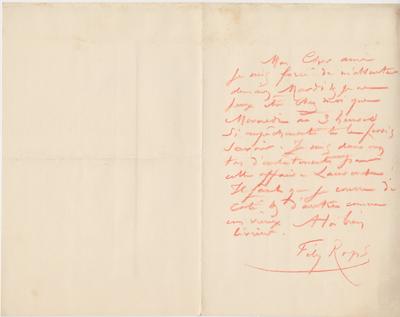 Mon Cher ami
Je suis forcé de m'absenter
demain Mardi & je ne
peux être chez moi que
Mercredi à 3 heures
Si empêchement te le ferais
savoir. Je suis dans un
tas d'embêtements pour
cette affaire
Il faut que je courre de
côté & d'autres comme
un vieux. A toi bien
Fély Rops